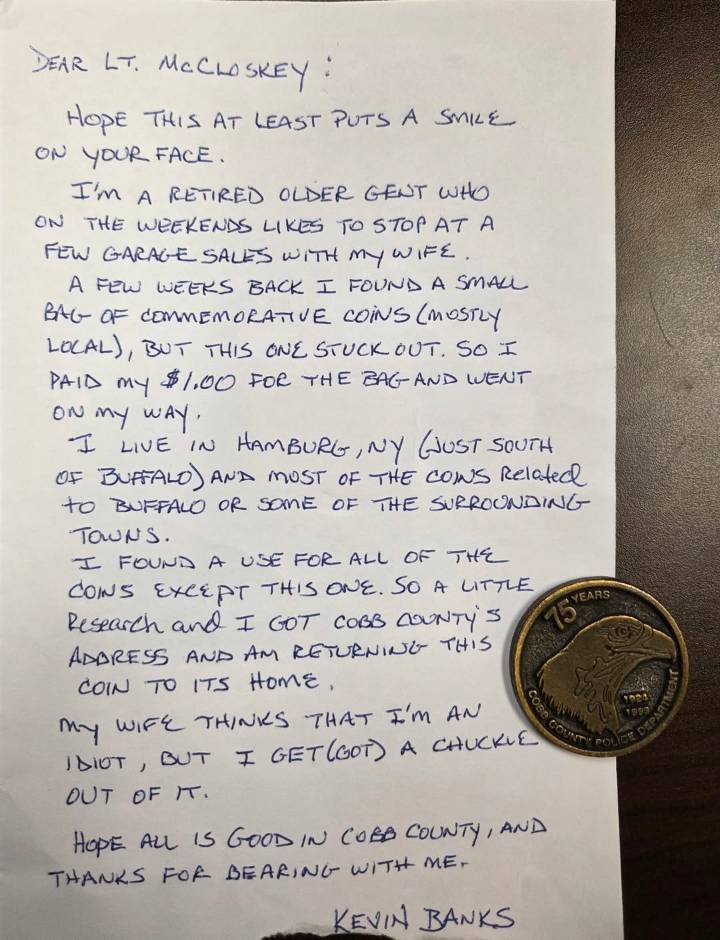 DEAR LT. McCLOSKEY:
HOPE THIS AT LEAST PUTS A SMILE
ON YOUR FACE.
I'M A RETIRED OLDER GENT WHO
ON THE WEEKENDS LIKES TO STOP AT A
FEW GARAGE SALES WITH MY WIFE.
A FEW WEEKS BACK I FOUND A SMALL
BAG OF COMMEMORATIVE COINS (MOSTLY
LOCAL), BUT THIS ONE STUCK OUT. SO I
PAID MY $1.00 FOR THE BAG AND WENT
ON MY WAY.
I LIVE IN HAMBURG, NY (JUST SOUTH
OF BUFFALO) AND MOST OF THE COINS Related
to BUFFALO OR SOME OF THE SURROUNDING
TOWNS.
I FOUND A USE FOR ALL OF THE
COINS EXCEPT THIS ONE. SO A LITTLE
Research and I GOT COBB COUNTY'S
ADDRESS AND AM RETURNING THIS
COIN TO ITS HOME.
MY WIFE THINKS THAT I'M AN
IDIOT, BUT I GET (GOT) A CHUCKLE
OUT OF IT.
HOPE ALL IS GOOD IN COBB COUNTY, AND
THANKS FOR BEARING WITH ME.
KEVIN BANKS
75 YEARS
1924
1999
COBB COUNTY POLICE DEPARTMENT